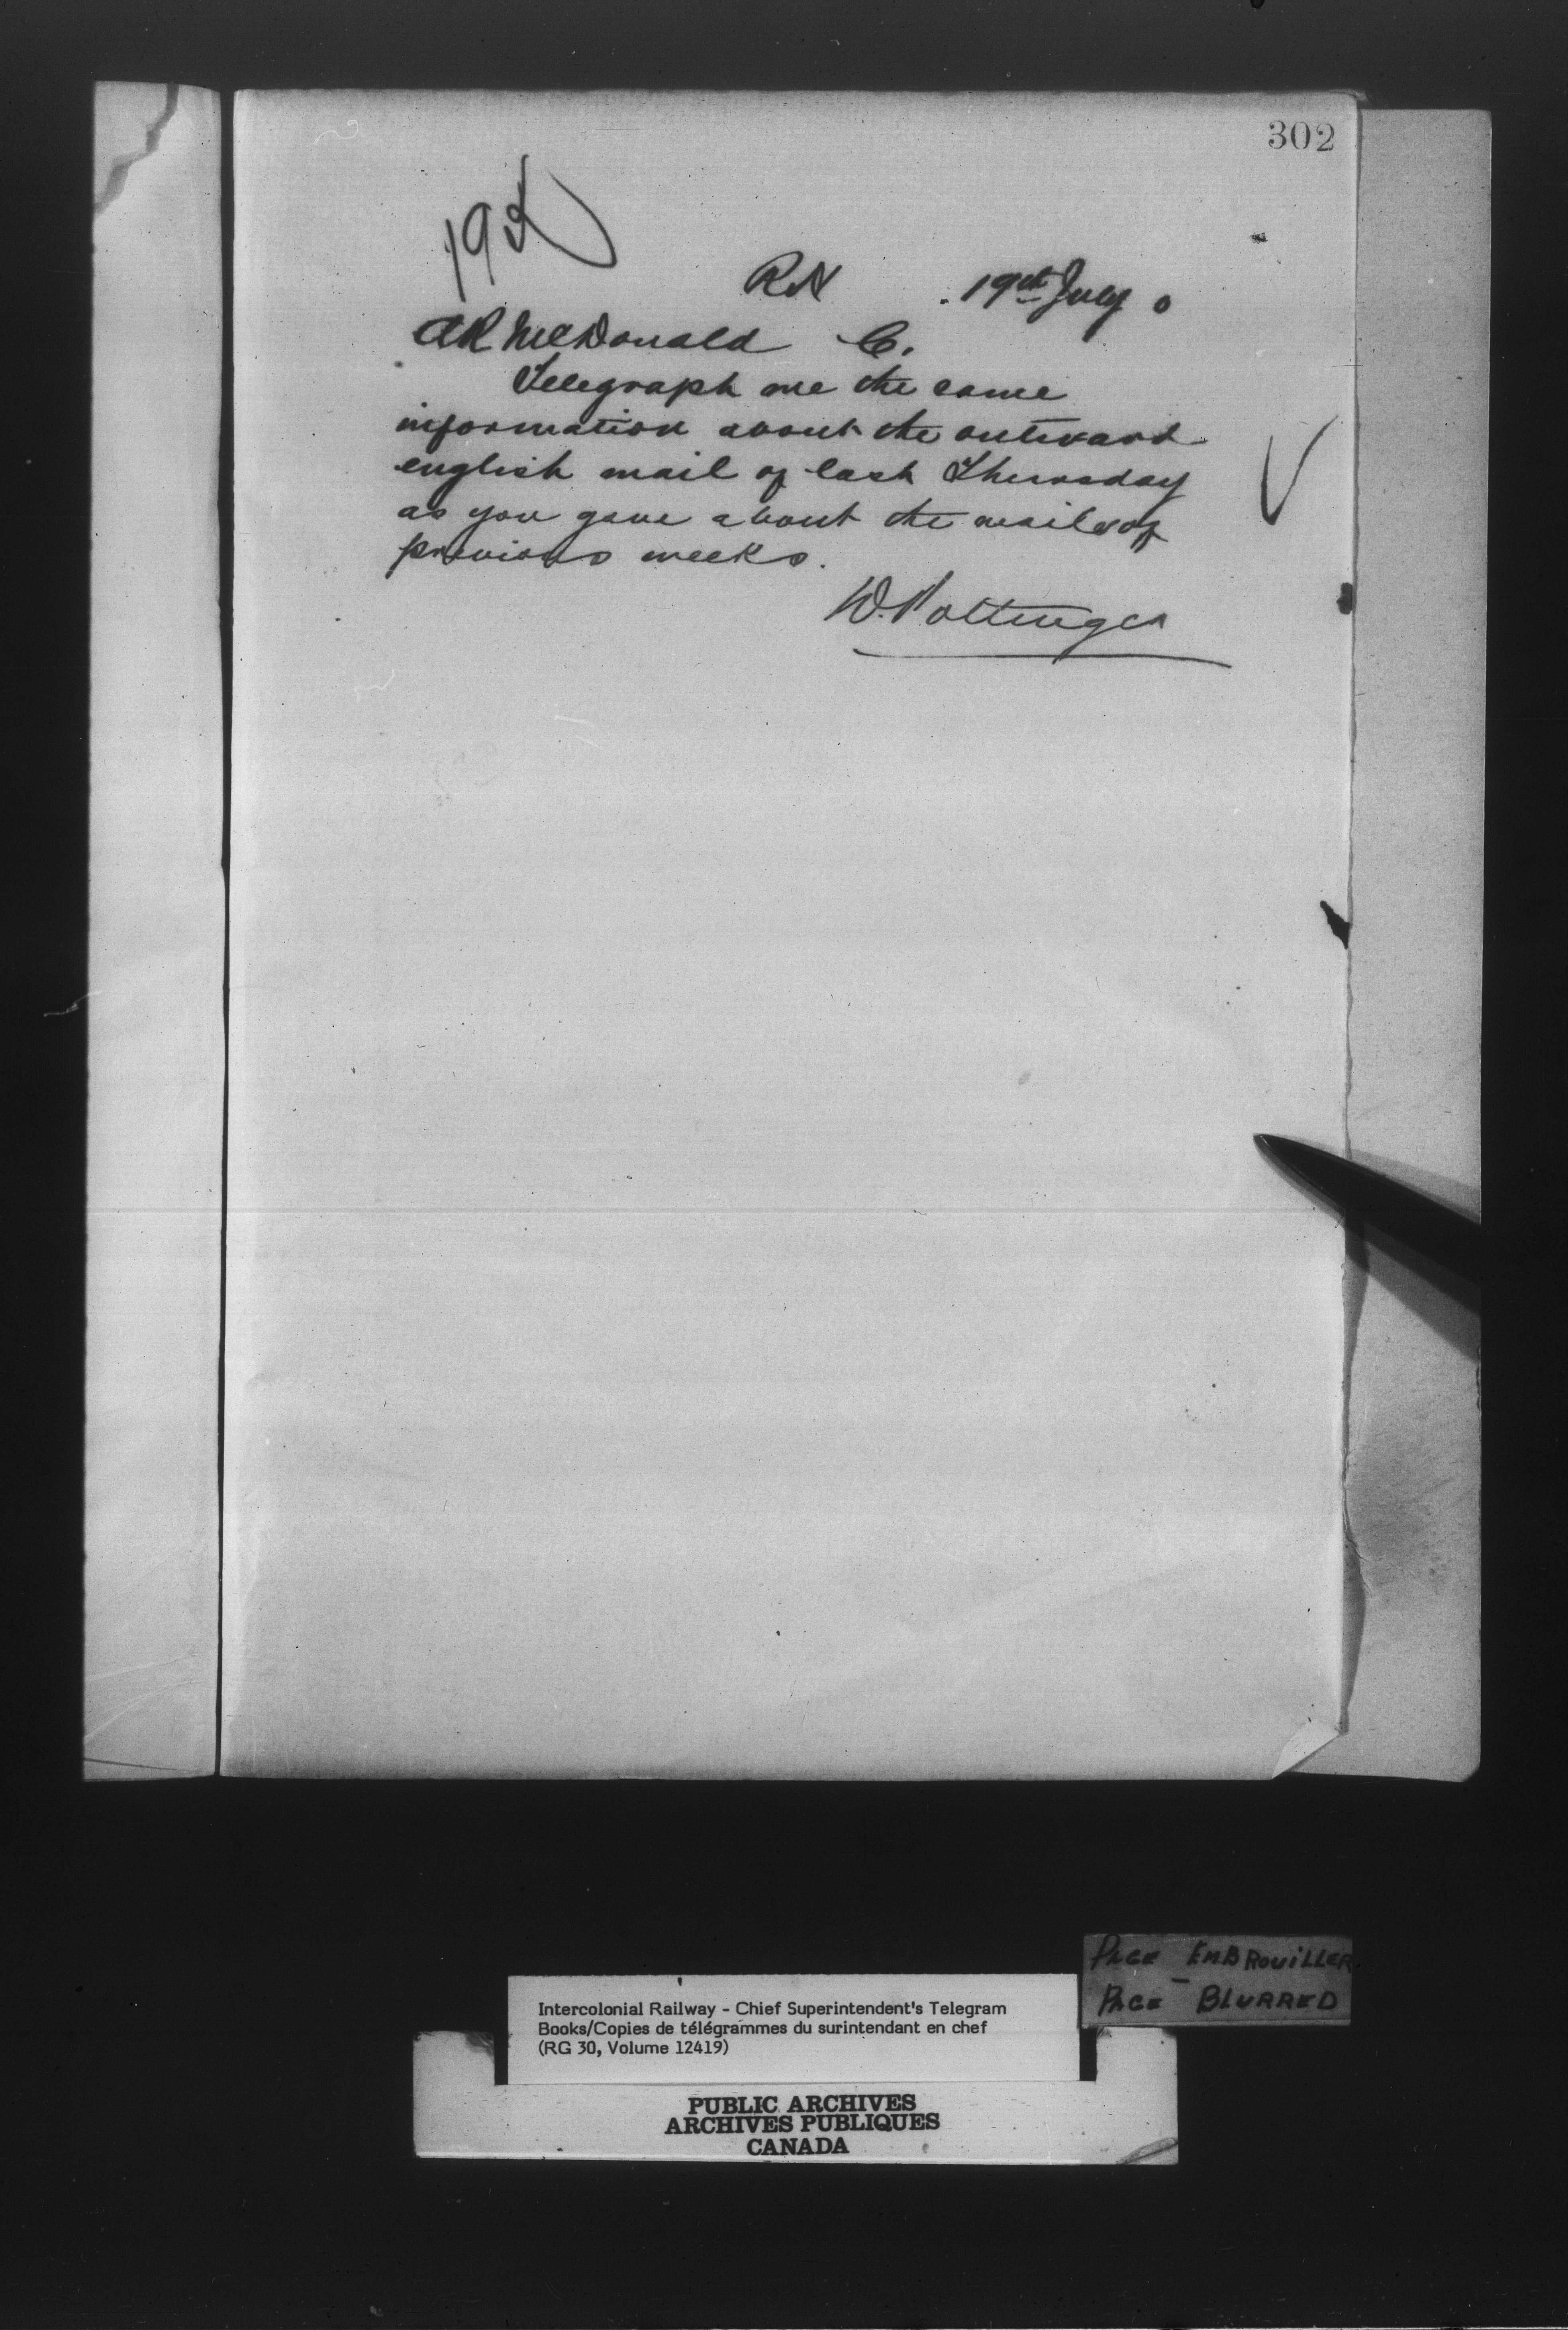 302
RN 19th July 0
AR McDonald C.
Telegraph me the same
information about the outward
english mail of last Thursday
as you gave about the mails of
previous weeks.
W. Pottinger
PAGE EMBROUILLER
PAGE BLURRED
Intercolonial Railway - Chief Superintendent's Telegram
Books/Copies de télégrammes du surintendant en chef
(RG 30, Volume 12419)
PUBLIC ARCHIVES
ARCHIVES PUBLIQUES
CANADA